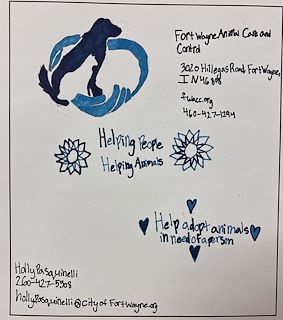 Fort Wayne Animal Care and
Control
3020 Hillegas Road Fort Wayne,
IN 46808
fwacc.org
460-427-1244
Helping People
Helping Animals
Help adopt animals
in need of a person
Holly Pasquinelli
260-427-5508
HollyPasquinelli@CityofFortWayne.org